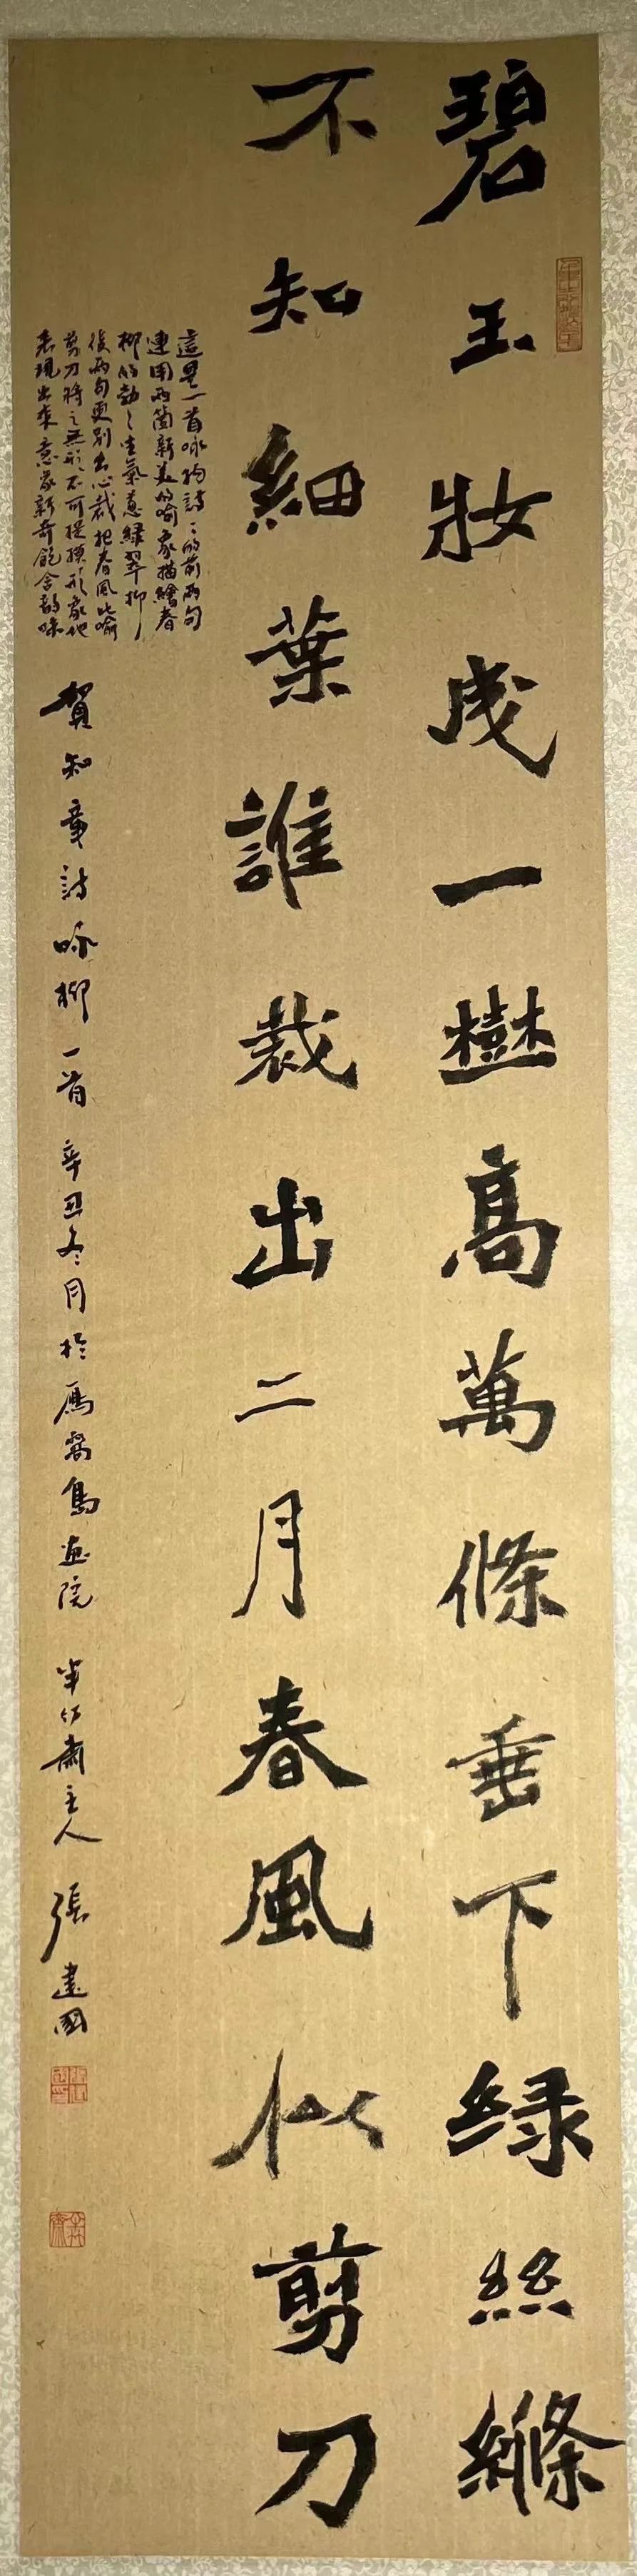 碧玉妝成一樹高萬條垂下緑絲縧
不知細葉誰裁出二月春風似剪刀
這是一首咏物詩ミ的前兩句
連用兩箇新美的喻象描繪春
柳的勃ミ生氣葱緑翠柳
後兩句更别出心裁把春風比喻
剪刀將之無形不可捉摸形象地
表現出來意象新奇飽含韵味
賀知章詩咏柳一首 辛丑冬月於雁窩島畫院 半竹齋主人 張建國